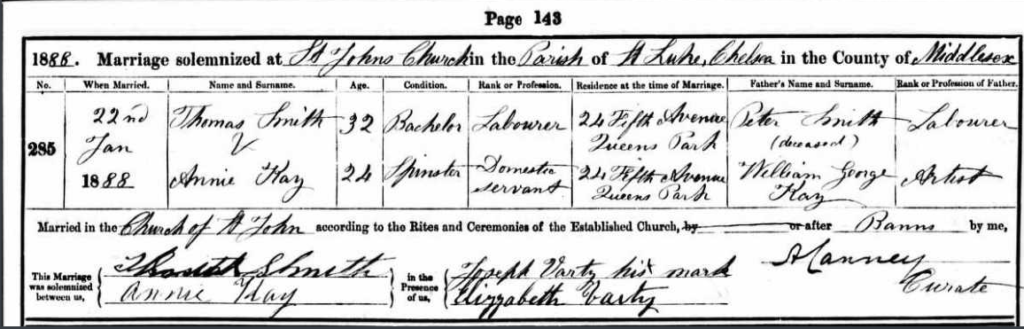 Page 143
1888. Marriage solemnized at St Johns Church in the Parish of St Luke, Chelsea in the County of Middlesex
No. When Married. Name and Surname. Age. Condition. Rank or Profession. Residence at the time of Marriage. Father's Name and Surname. Rank or Profession of Father.
285 22nd Jan 1888
Thomas Smith 32 Bachelor Labourer 24 Fifth Avenue Queens Park Peter Smith (deceased) Labourer
Annie Kay 24 Spinster Domestic servant 24 Fifth Avenue Queens Park William George Kay Artist
Married in the Church of St John according to the Rites and Ceremonies of the Established Church, by or after Banns by me,
This Marriage was solemnized between us, Smith Annie Kay in the Presence of us, Joseph Varty his x mark Elizzabeth Varty
Curate